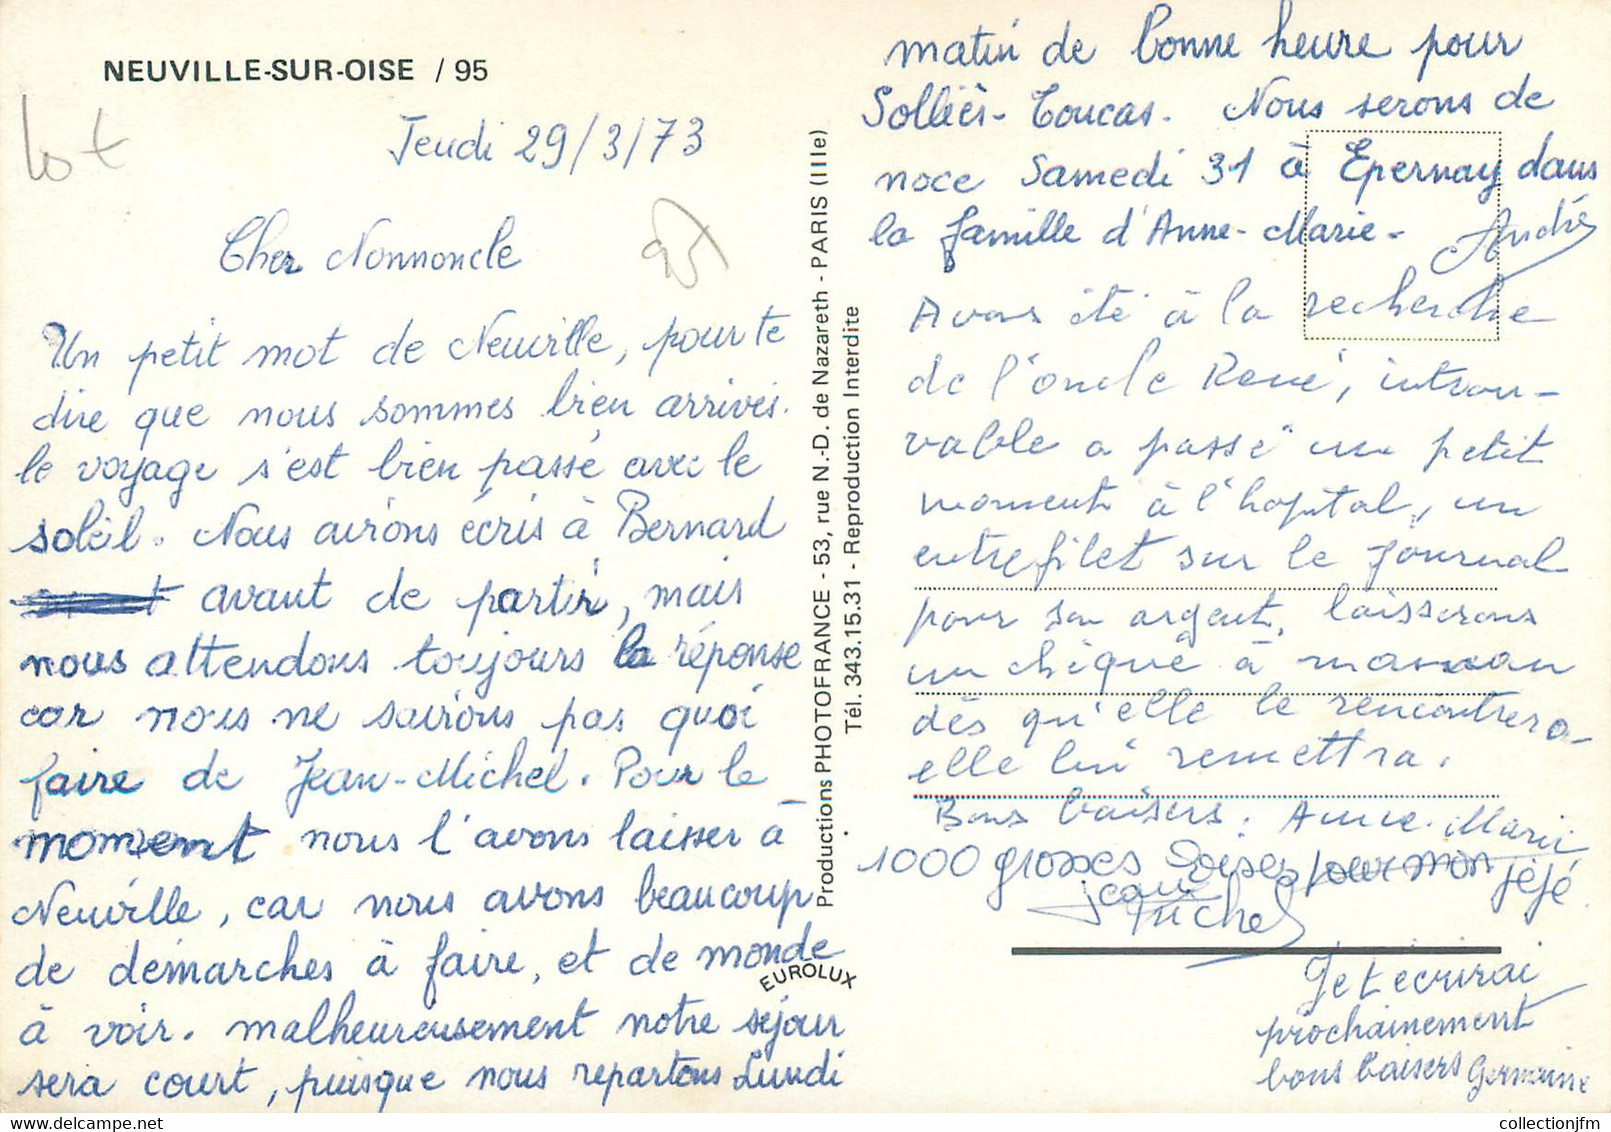 NEUVILLE-SUR-OISE / 95
lot
Jeudi 29/3/73
Cher Nonnoncle
Un petit mot de Neuville, pour te
dire que nous sommes bien arrivés.
le voyage s'est bien passé avec le
soleil. Nous avions écris à Bernard
avant de partir, mais
nous attendons toujours la réponse
car nous ne savions pas quoi
faire de Jean-Michel. Pour le
moment nous l'avons laisser à
Neuville, car nous avons beaucoup
de démarches à faire, et de monde
à voir. malheureusement notre séjour
sera court, puisque nous repartons Lundi
Productions PHOTOFRANCE - 53, rue N.-D. de Nazareth - PARIS (IIIe)
Tél. 343.15.31 - Reproduction Interdite
EUROLUX
matin de bonne heure pour
Solliès-Toucas. Nous serons de
noce Samedi 31 à Epernay dans
la famille d'Anne-Marie.
André
Avons été à la recherche
de l'oncle René, introu-
vable a passé un petit
moment à l'hopital, un
entrefilet sur le journal
pour son argent, laisserons
un chèque à maman
dès qu'elle le rencontrera
elle lui remettra.
Bons baisers. Anne-Marie
1000 grosses boises pour mon jéjé
jean Michel
Je t écrirai
prochainement
bons baisers Germaine
collectionjfm